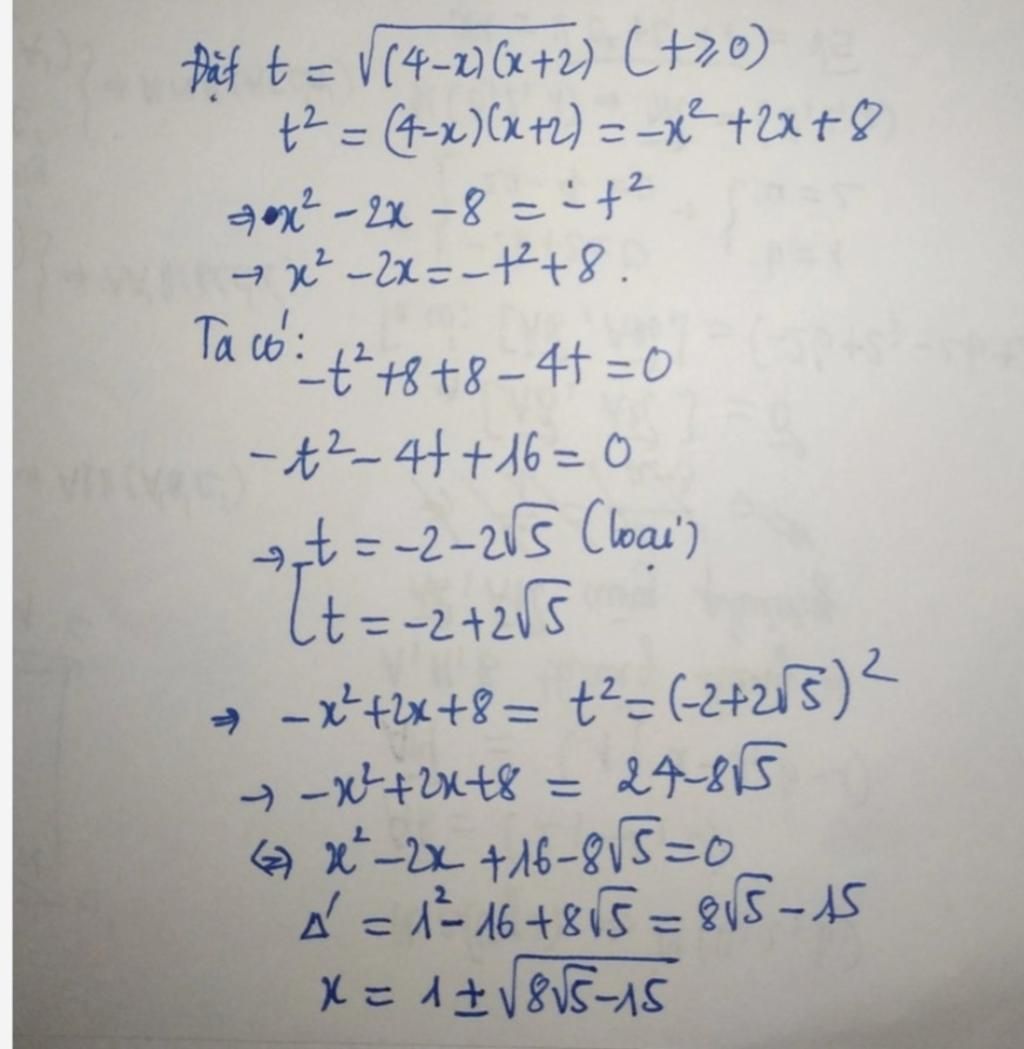 Đặt t = √((4-x)(x+2)) (t≥0)
t² = (4-x)(x+2) = -x² +2x+8
⇒ x² - 2x - 8 = -t²
→ x² - 2x = -t² + 8.
Ta có:
-t² +8+8 - 4t = 0
-t² - 4t + 16 = 0
→ [t = -2-2√5 (loại)
t = -2+2√5
⇒ -x²+2x+8 = t² = (-2+2√5)²
→ -x²+2x+8 = 24-8√5
⇔ x² - 2x + 16 - 8√5 = 0
Δ' = 1² - 16 + 8√5 = 8√5 - 15
x = 1 ± √(8√5-15)